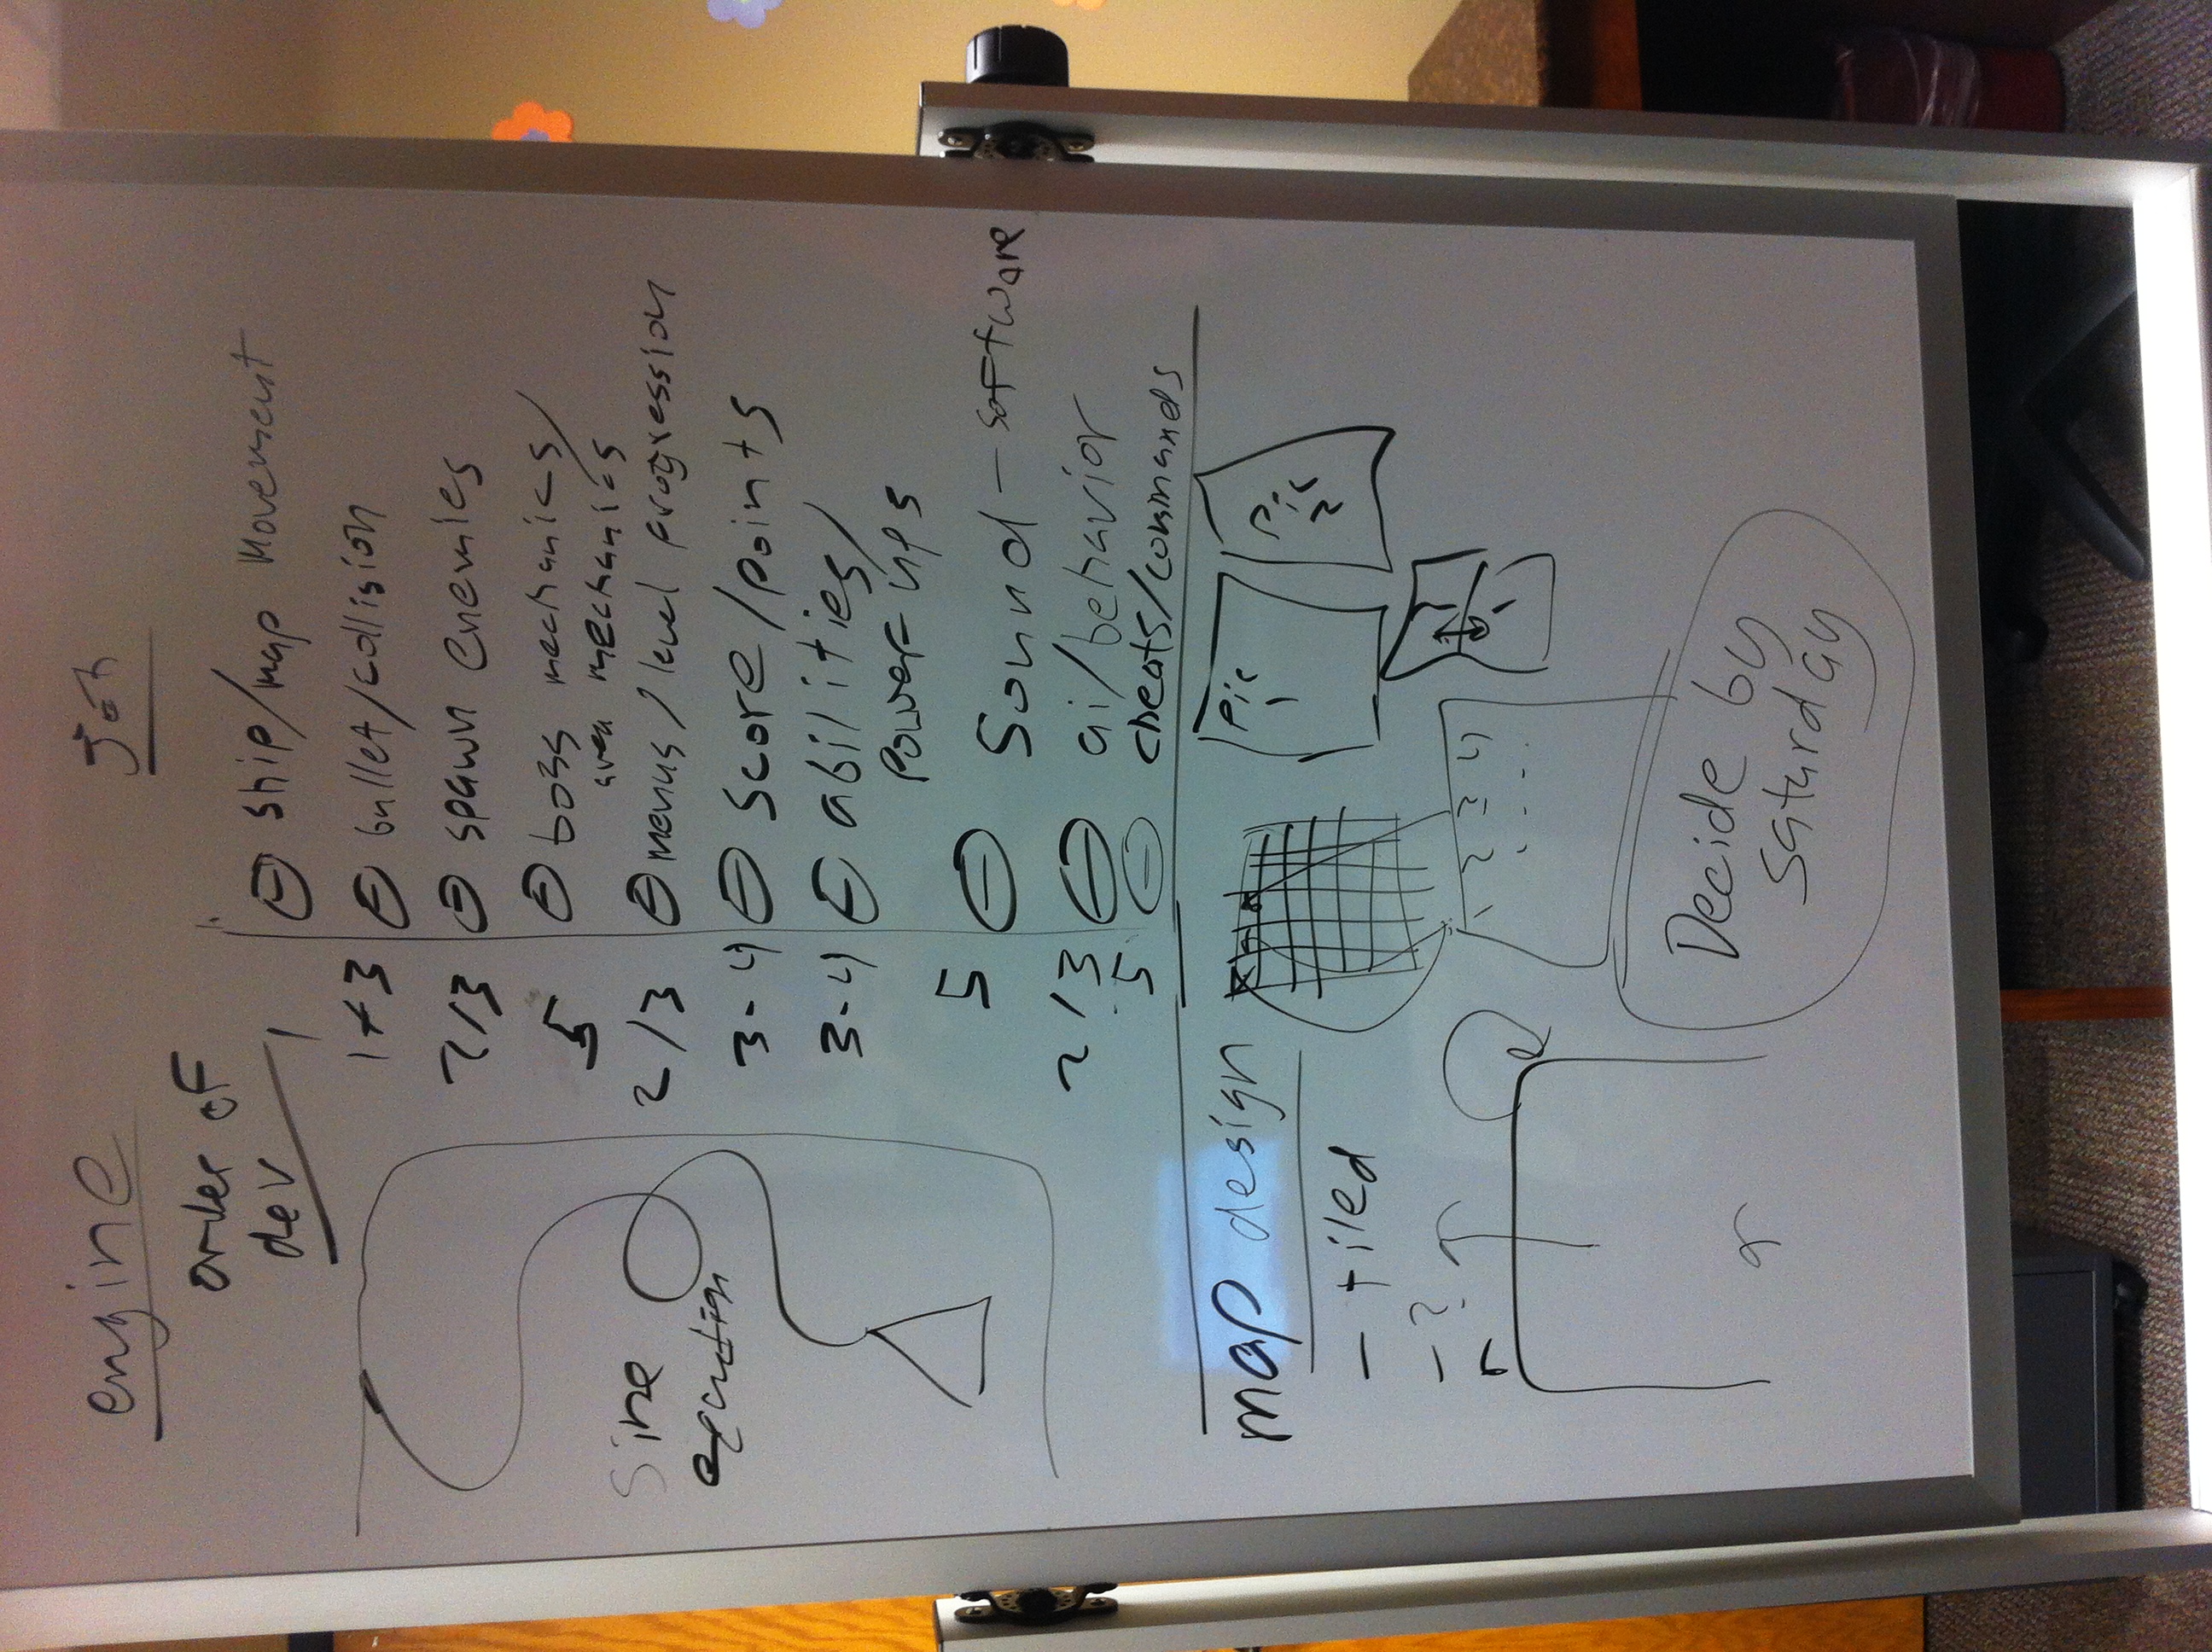 engine
job
order of
dev
1 ship/map Movement
1+3 bullet/collision
2/3 spawn enemies
5 boss mechanics/
area mechanics
2/3 menus/level progression
3-4 score/points
3-4 abilities/
Power ups
5 Sound - software
2/3 ai/behavior
5 cheats/commands
Sine
equation
map design
- tiled
- ?
Pic
1
Pic
2
1 2 3 4
2
1
Decide by
Saturday